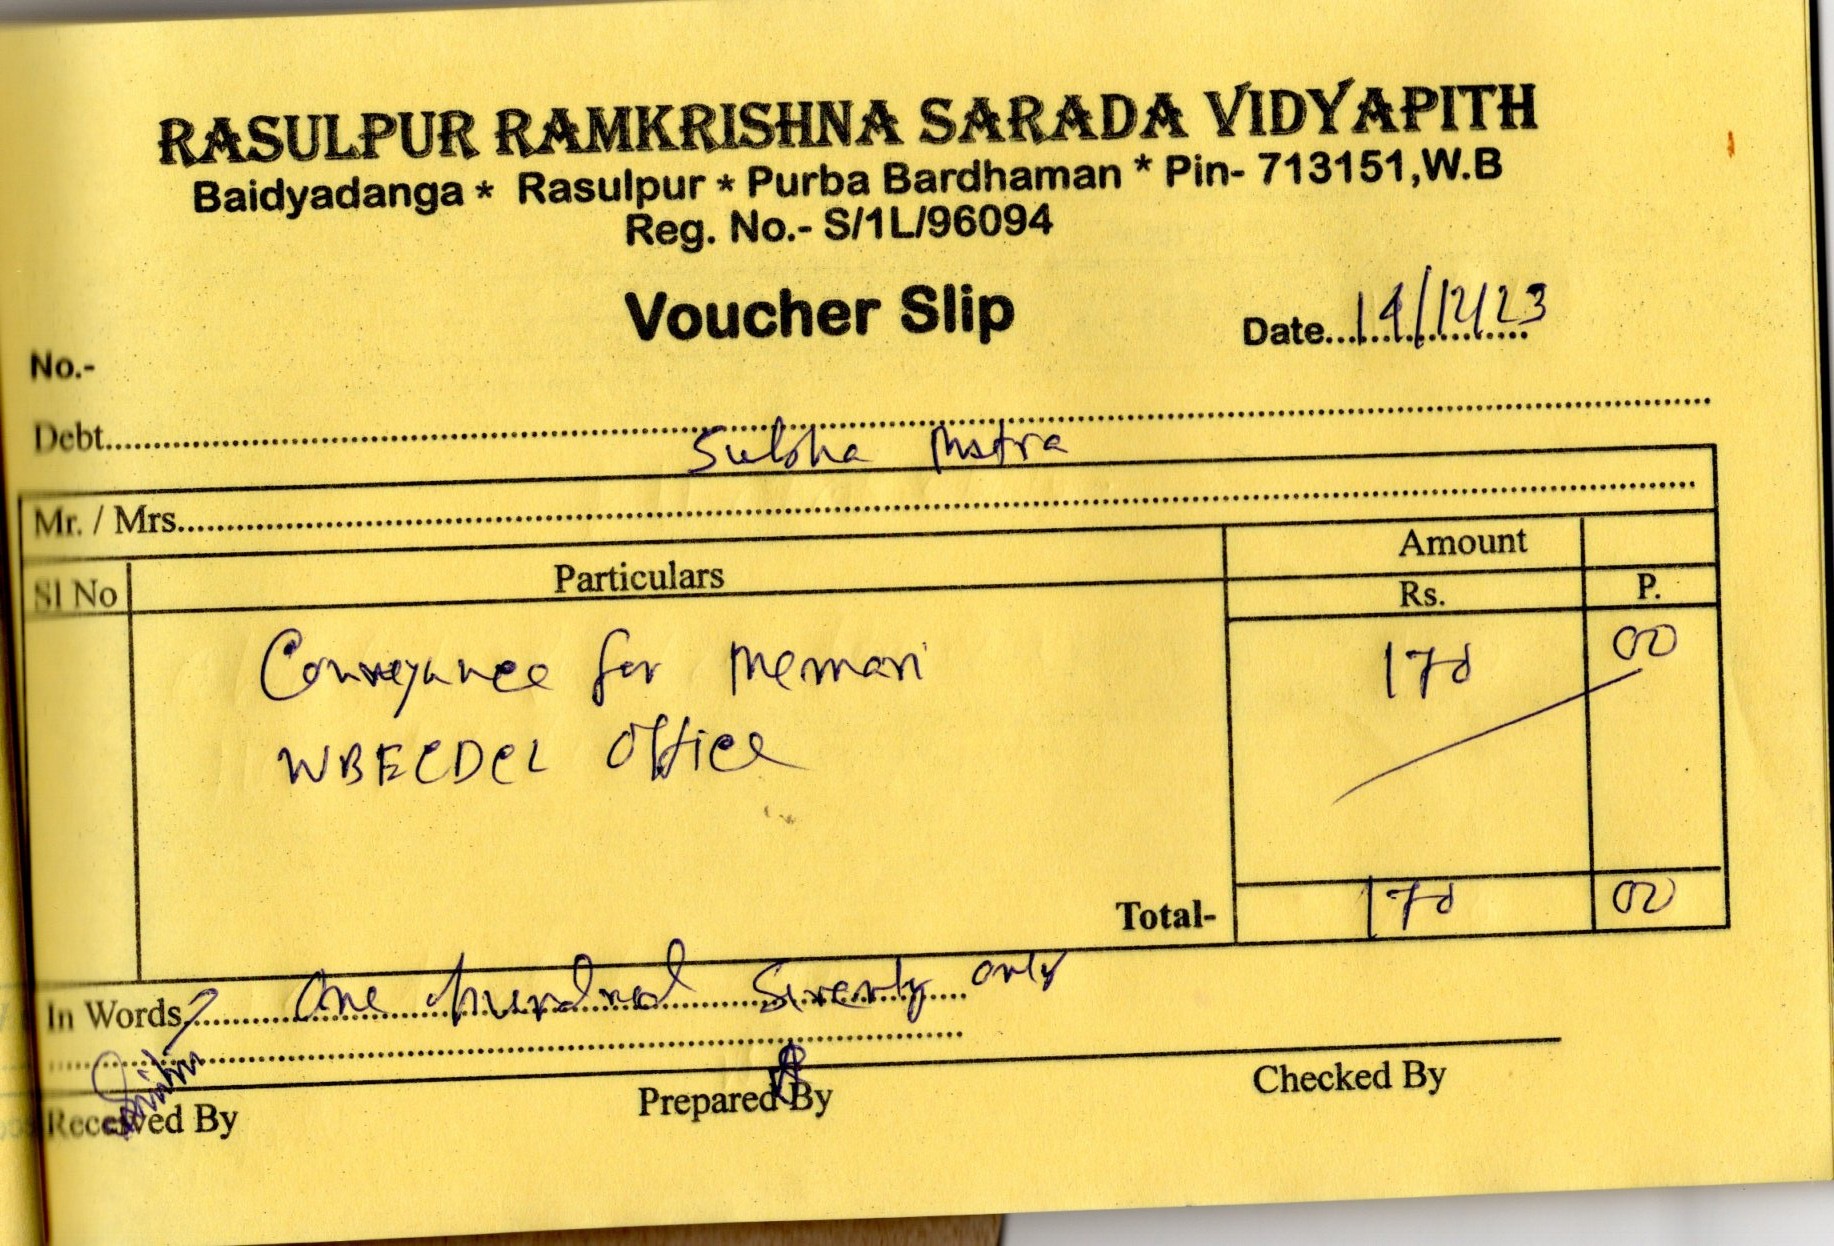 RASULPUR RAMKRISHNA SARADA VIDYAPITH
Baidyadanga * Rasulpur * Purba Bardhaman * Pin- 713151,W.B
Reg. No.- S/1L/96094
Voucher Slip
Date...14/12/23
No.-
Debt
Subha Mitra
Mr. / Mrs.
Sl No Particulars Amount
Rs. P.
Conveyance for Memari 170 00
WBECDCL Office
Total- 170 00
In Words One hundred Seventy only
Received By Prepared By Checked By